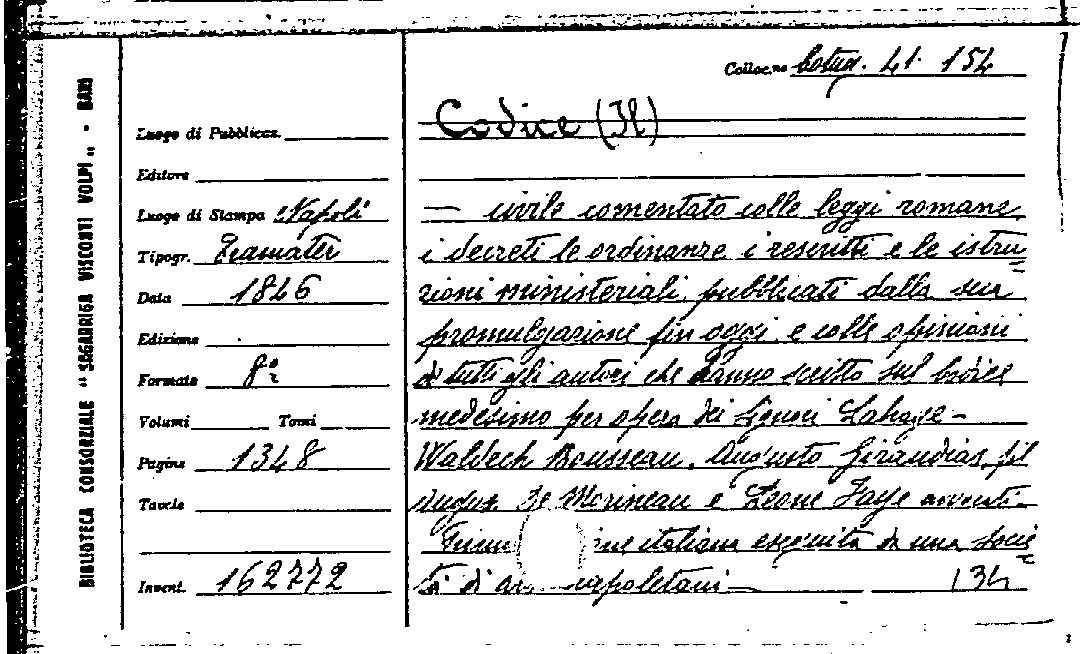 BIBLIOTECA CONSORZIALE "SAGARRIGA VISCONTI VOLPI" - BARI
Colloc.ne Cotug. 41. 154
Luogo di Pubblicaz.
Editore
Luogo di Stampa Napoli
Tipogr. Tramater
Data 1846
Edizione
Formato 8º
Volumi Tomi
Pagine 1348
Tavole
Invent. 162772
Codice (Il)
— civile comentato colle leggi romane,
i decreti le ordinanze i rescritti e le istru
zioni ministeriali pubblicati dalla sua
promulgazione fin oggi e colle opinioni
di tutti gli autori che hanno scritto sul codice
medesimo per opera dei signori Lahaye-
Waldech Rousseau, Augusto Giraudias, fil
De Morineau e Leone Faye avvocati.
italiana eseguita da una socie
tà di napoletani — 134